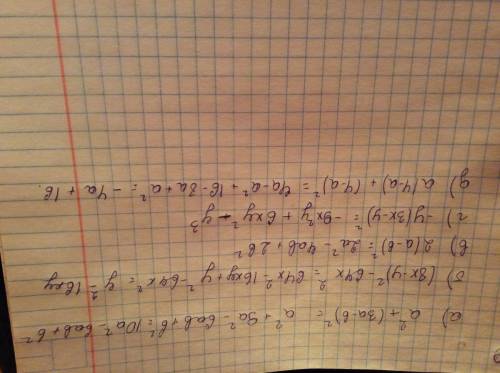 а) a² + (3a-b)² = a² + 9a² - 6ab + b² = 10a² - 6ab + b²
б) (8x-y)² - 64x² = 64x² - 16xy + y² - 64x² = y² - 16xy
в) 2(a-b)² = 2a² - 4ab + 2b²
г) -y(3x-y)² = -9x²y + 6xy² - y³
д) a(4-a) + (4-a)² = 4a - a² + 16 - 8a + a² = -4a + 16.